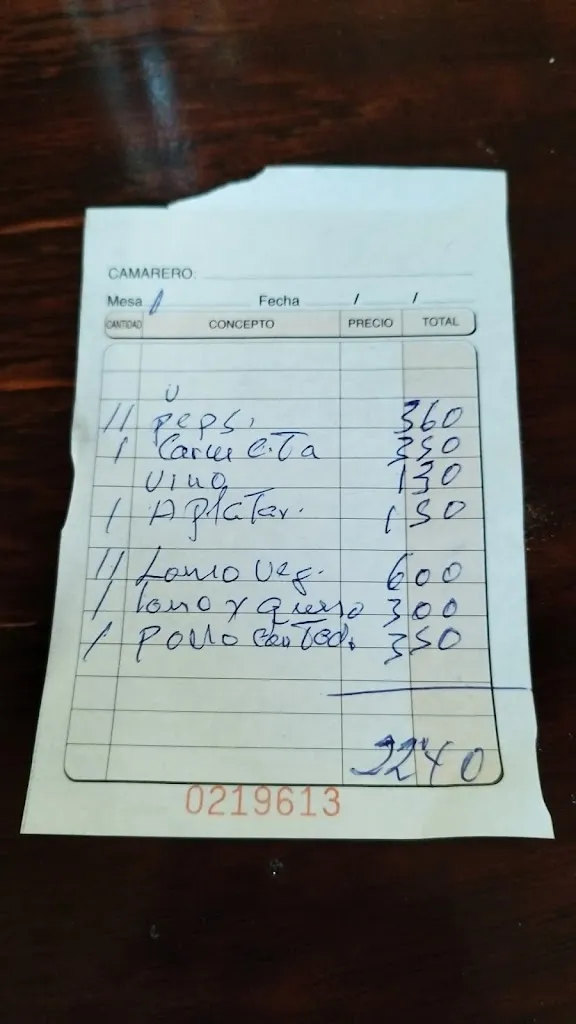 CAMARERO:
Mesa 1 Fecha / /
CANTIDAD CONCEPTO PRECIO TOTAL
11 pepsi 360
1 Carne C.Ta 350
Vino 130
1 A plaTar. 150
11 Lomo Veg. 600
1 lomo y Queso 300
1 Pollo 350
2240
0219613